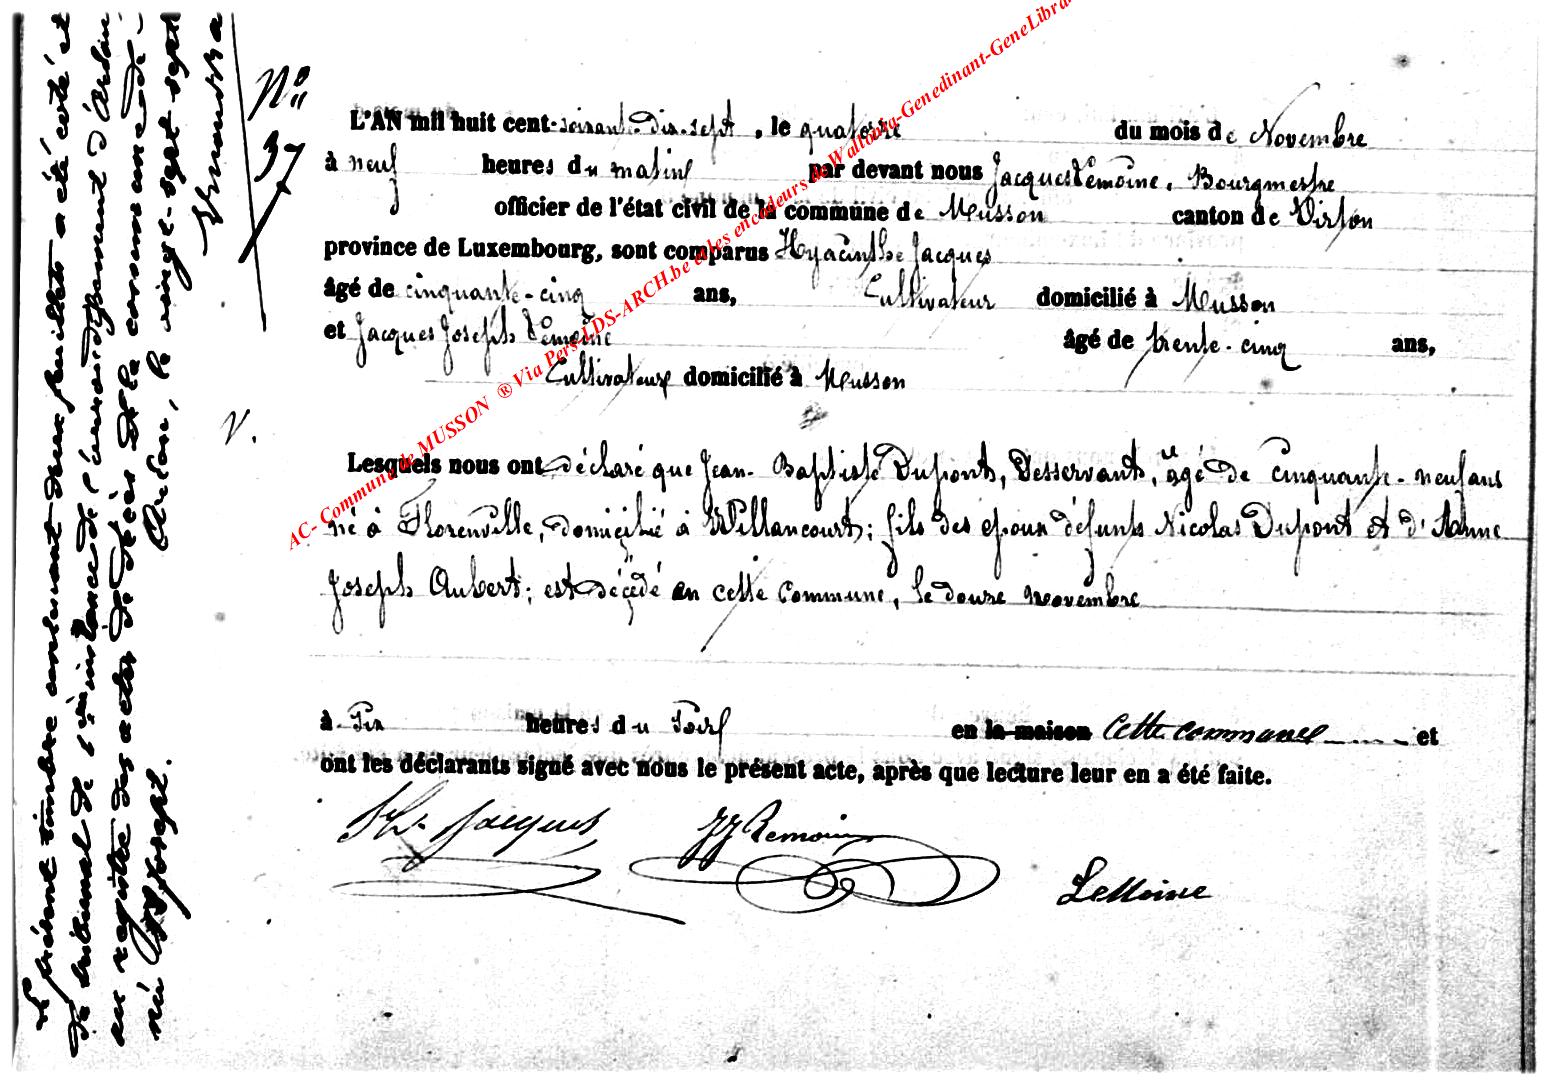 Le présent timbre contenant deux feuillets a été coté et
du tribunal de 1ère instance de l'arrondissement d'Arlon
au registre des actes de décès de la commune de
né Joseph. Arlon, le vingt-sept sept
No
37
L'AN mil huit cent soixante-dix-sept, le quatorze du mois de Novembre
à neuf heures du matin par devant nous Jacques Lémoine, Bourgmestre
officier de l'état civil de la commune de Musson canton de Virton
province de Luxembourg, sont comparus Hyacinthe Jacques
âgé de cinquante-cinq ans, Cultivateur domicilié à Musson
et Jacques Joseph Lémoine âgé de trente-cinq ans,
Cultivateur domicilié à Musson
V.
Lesquels nous ont déclaré que Jean-Baptiste Dupont, Desservant, agé de cinquante-neuf ans
né à Florenville, domicilié à Willancourt; fils des époux défunts Nicolas Dupont et d'Anne
Joseph Aubert; est décédé en cette commune, le douze novembre
à six heures du soir en la maison cette commune et
ont les déclarants signé avec nous le présent acte, après que lecture leur en a été faite.
Hte Jacques JJ Lemoine LeMoine
AC- Commune de MUSSON ® Via Pers-LDS-ARCH.be et les encodeurs de Wallourg-Genedinant-GeneLibra